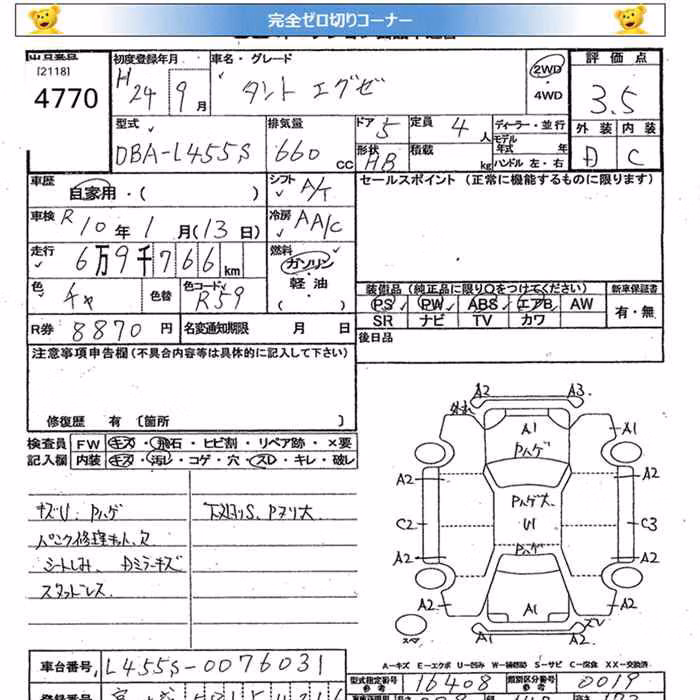 完全ゼロ切りコーナー
[2118]
4770
初度登録年月 H24年9月
車名・グレード タント エグゼ
2WD・4WD
評価点 3.5
型式 DBA-L455S
排気量 660 CC
ドア 5
形状 HB
定員 4人
積載 kg
ディーラー・並行
モデル年式 年
ハンドル 左・右
外装 D 内装 C
車歴 自家用・( )
シフト A/T
セールスポイント (正常に機能するものに限ります)
車検 R10年1月(13日)
冷房 AA/C
走行 6万9千766km
燃料 ガソリン・軽油・( )
色 チャ 色替 色コード R59
装備品 (純正品に限り○をつけてください) 新車保証書
PS PW ABS エアB AW 有・無
SR ナビ TV カワ
R券 8870円 名変通知期限 月 日
後日品
注意事項申告欄(不具合内容等は具体的に記入して下さい)
修復歴 有 [箇所 ]
検査員 FW キズ・飛石・ヒビ割・リペア跡・×要
記入欄 内装 キズ・汚レ・コゲ・穴・スレ・キレ・破レ
キズU Pハゲ
下スリS、Pヌリ大
パンク修理キット、欠
シートしみ、Dミラーキズ
スタットレス
A2 A3
A1 A1
Pハゲ
A2 A2
Pハゲ大
C2 U1 C3
Pハゲ
A2 A2
A2 A1 A2
A2
A-キズ E-エクボ U-凹み W-補修跡 S-サビ C-腐食 XX-交換済
車台番号 L455S-0076031
型式指定番号 参考 16408 類別区分番号 参考 0019
登録番号